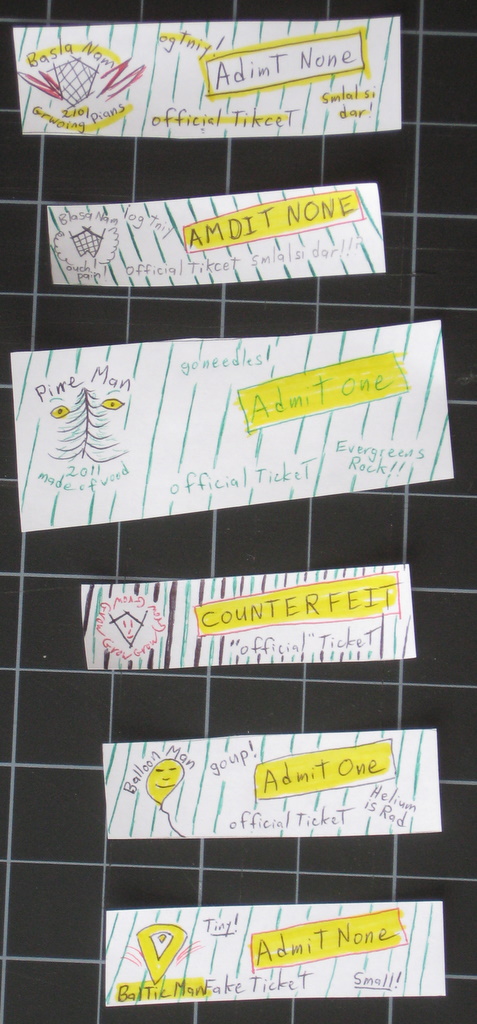 Basla Nam
ogtniy!
Adimt None
2101
Grwoing pians
official Tikcet
smlalsi
dar!
Blasa Nam
ogtniy
AMDIT NONE
ouch!
pain!
official Tikcet
smlalsi dar!!?
Pine Man
goneedles!
Admit One
2011
made of wood
official Ticket
Evergreens
Rock!!
Grow Grow Grow Grow Grow
COUNTERFEIT
"official" Ticket
Balloon Man
goup!
Admit One
official Ticket
Helium
is Rad
Tiny!
Admit None
Baltic Man
Fake Ticket
Small!